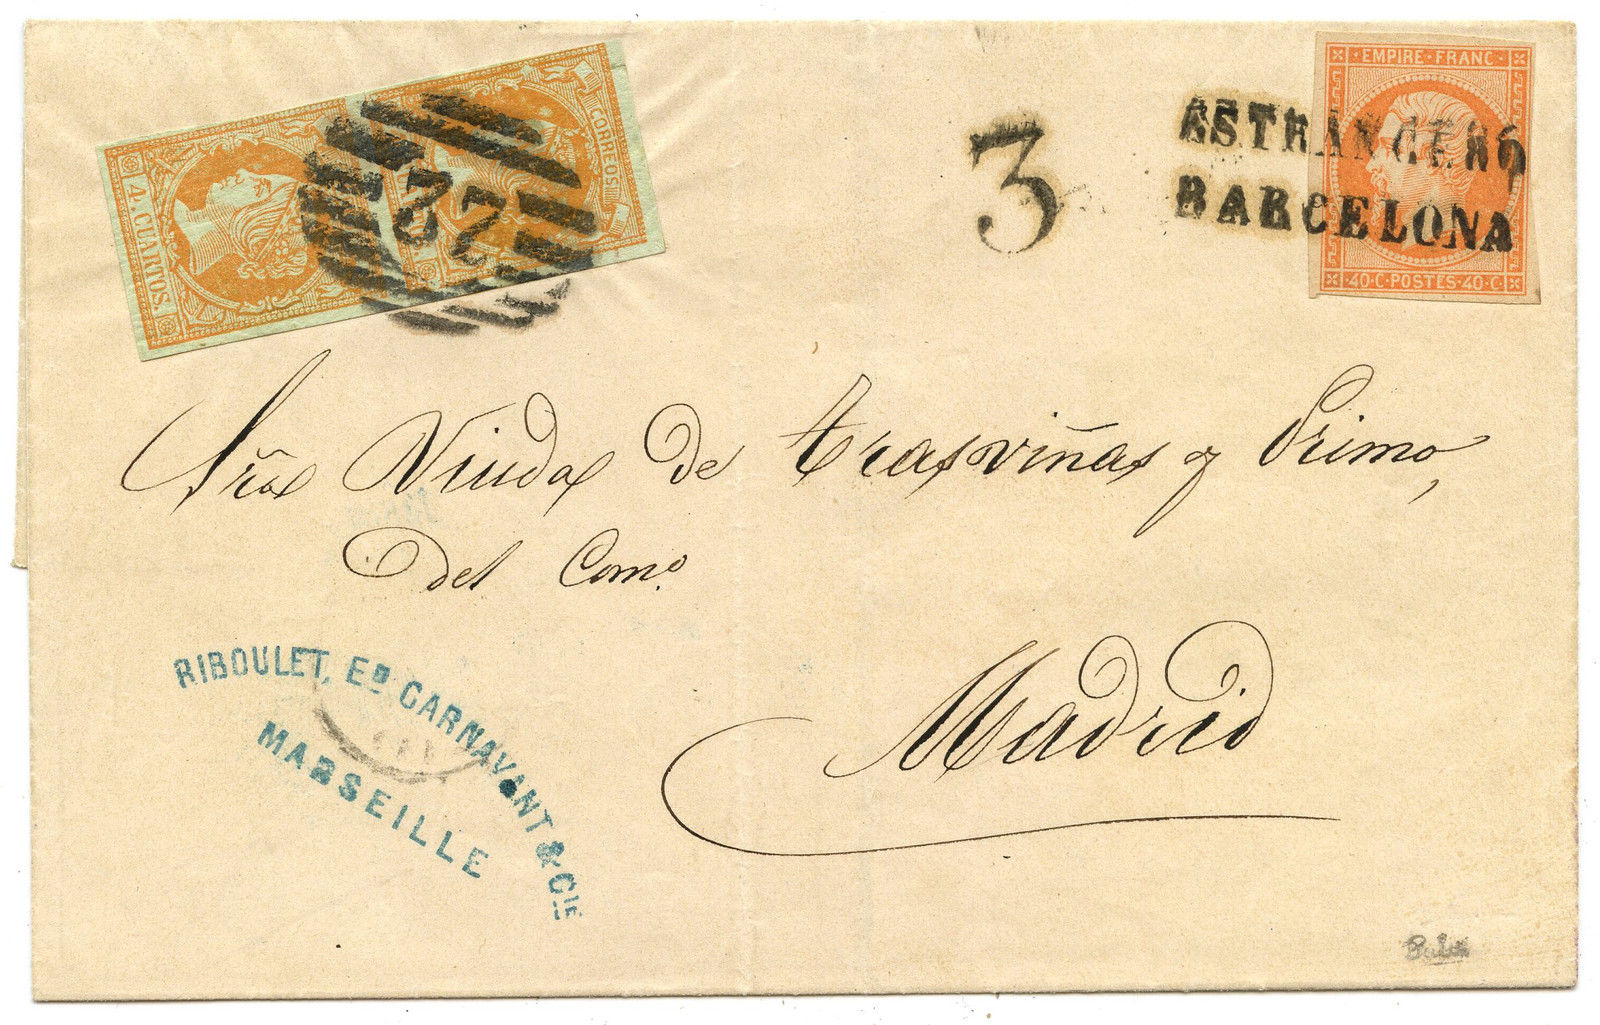 EMPIRE · FRANC ·
40 · C · POSTES · 40 · C ·
ESTRANGERO
BARCELONA
3
CORREOS
4. CUARTOS.
2
Sra Viuda de Trasviñas y Primo,
del Como.
Madrid
RIBOULET, ED CARNAVANT & CIE
MARSEILLE